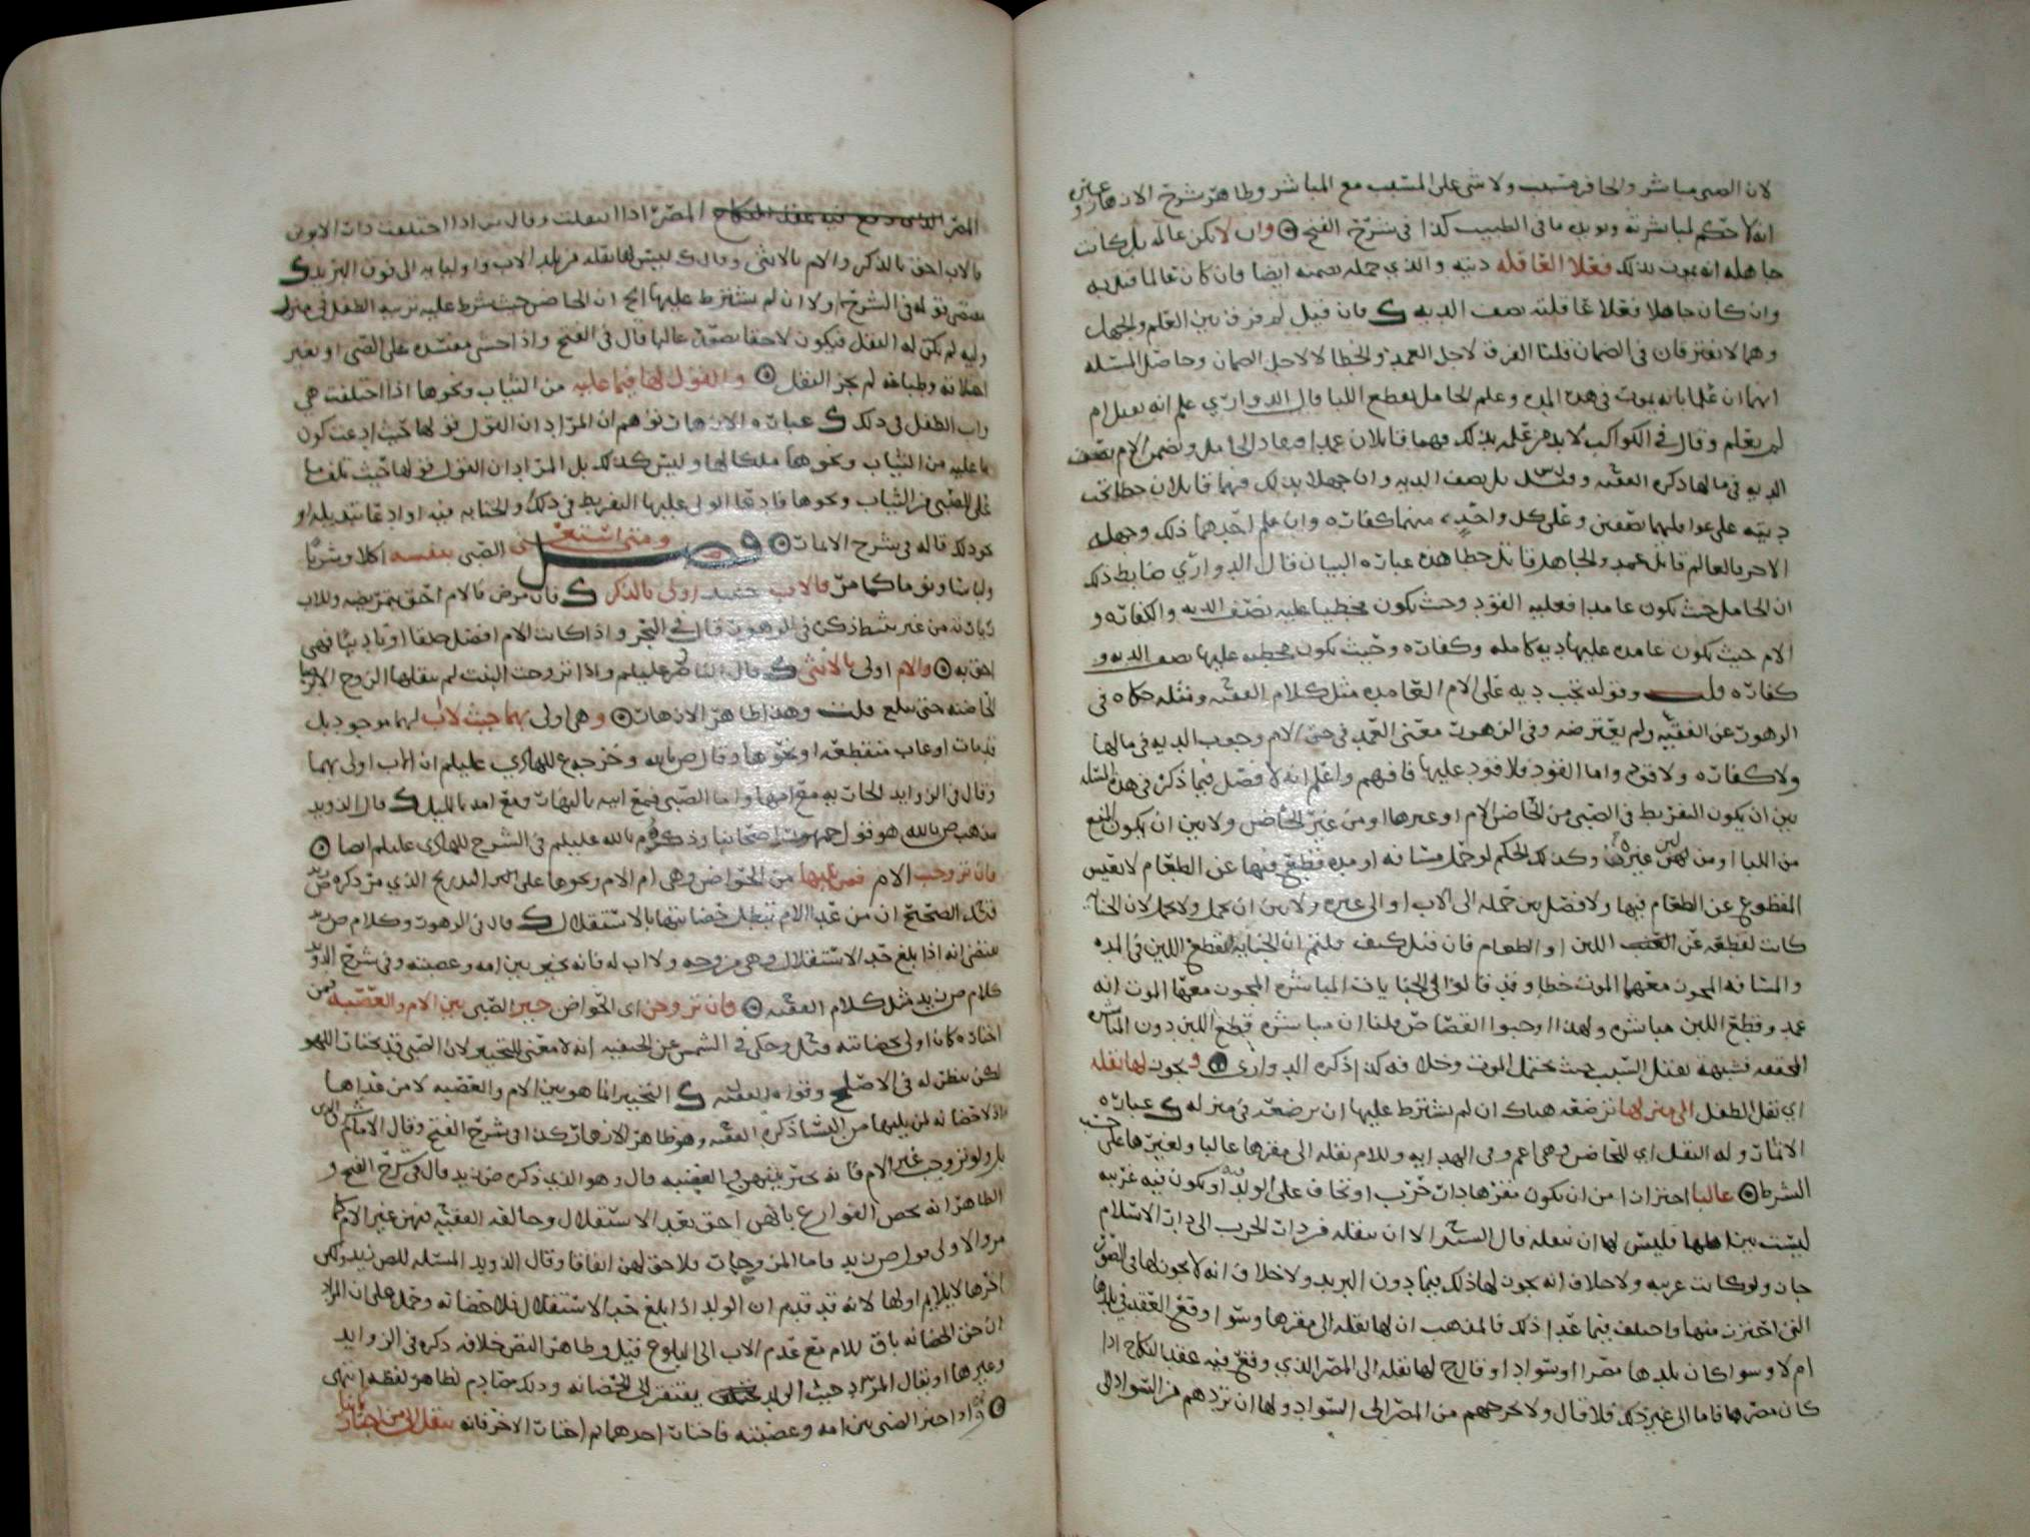 لان الصبي مباشر والحافر مسبب ولا شي على المسبب مع المباشر وظاهر شرح الازهار وغيره
انه لا حكم لمباشرته ويويده ما في الطبيب كذا في شرح الفتح وان لا تكن عالمه بل كانت
جاهله انه يموت بذلك فعلا العاقله ديته والذي حمله يضمنه ايضا فان كان عالما قتل به
وان كان جاهلا فعلا عاقلته نصف الديه ك فان قيل لم فرق بين العلم والجهل
وهما لا يفترقان في الضمان قلنا الفرق لاجل العمد والخطا لا لاجل الضمان وحاصل المسئله
انهما ان علما بانه يموت في هذه المده وعلم الحامل بقطع اللبا قال الدواري علم انه يقبل ام
لم يعلم وقال في الكواكب لا بد من علمه بذلك فهما قاتلان عمدا فيقاد الحامل وتضمن الام نصف
الديه في مالها ذكره الفقيه وقيل بل نصف الديه وان جهلا ذلك فهما قاتلان خطا تجب
ديته على عواقلهما نصفين وعلى كل واحد منهما كفاره وان علم احدهما ذلك وجهله
الاخر فالعالم قاتل عمد والجاهل قاتل خطا هذه عباره البيان قال الدواري ضابط ذلك
ان الحامل حيث يكون عامدا فعليه القود وحيث يكون مخطيا عليه نصف الديه والكفاره و
الام حيث تكون عامده عليها ديه كامله وكفاره وحيث تكون مخطيه عليها نصف الديه و
كفاره قلت وقوله تجب ديه على الام العامده مثل كلام الفقيه ومثله حكاه في
الزهور عن الفقيه ولم يعترضه وفي الزهور معنى العمد في حق الام وجوب الديه في مالها
ولا كفاره ولا قود واما القود فلا قود عليها فافهم واعلم انه لا فصل فيما ذكر في هذه المسئله
بين ان يكون التفريط في الصبي من الحاضن الام او غيرها او من غير الحاضن ولا بين ان يكون المنع
من اللبا او من لبن غيره وكذلك الحكم لو حمل مسافه او مده قطع فيها عن الطعام لا يعيش
المقطوع عن الطعام فيها ولا فصل بين حمله الى الاب او الى غيره ولا بين ان يحمل ولا يحمل لان الجنايه
كانت لقطعه عن اللبن او الطعام فان قيل كيف قلتم ان الجنايه بقطع اللبن في المده
والمسافه المجوز معهما الموت خطا وقد قالوا في الجنايات المباشره المجوز معها الموت انه
عمد وقطع اللبن مباشره ولهذا اوجبوا القصاص قلنا ان مباشره قطع اللبن دون المباشره
المحققه فشبهه بقتل السبب حيث يحتمل الموت وخلافه كذا ذكره الدواري ويجوز لها نقله
اي نقل الطفل الى مقرها ترضعه هناك ان لم يشترط عليها ان ترضعه في منزله ك عباره
الاثمار وله النقل اي للحاضن وهي اعم وفي الهدايه وللام نقله الى مقرها غالبا ولغيرها على حسب
الشرط غالبا احترازا من ان يكون مقرها دار حرب او تخاف على الولد فيه او تكون فيه غريبه
ليست بين اهلها فليس لها ان تنقله قال السيد الا ان تنقله من دار الحرب الى دار الاسلام
جاز ولو كانت غريبه ولا خلاف انه يجوز لها ذلك فيما دون البريد ولا خلاف انه لا يجوز لها في الصور
التي احترز منها واختلف فيما عدا ذلك فالمذهب ان لها نقله الى مقرها وسوا وقع العقد في بلدها
ام لا وسوا كان بلدها مصرا او سوادا وقال ح لها نقله الى المصر الذي وقع فيه عقد النكاح اذا
كان مصرها فاما الى غير ذلك فلا قال ولا تخرجهم من المصر الى السواد ولها ان تردهم من السواد الى
المصر الذي وقع فيه عقد النكاح المصر اذا انتقلت وقال ش اذا اختلفت دار الابوين
فالاب احق بالذكر والام بالانثى وقال ك ليس لها نقله من بلد الاب واوليائه الى فوق البريد ك
يعني قوله في الشرح ولا ان لم يشترط عليها الخ ان الحاضن حيث شرط عليه تربيه الطفل في منزل
وليه لم يكن له النقل فيكون لاحقا بصفه غالبا قال في الفتح واذا خشي مفسده على الصبي او تغير
اخلاقه وطباعه لم يجز النقل والقول لها فيما عليه من الثياب ونحوها اذا اختلفت هي
واب الطفل في ذلك ك عباره الازهار توهم ان المراد ان القول قولها حيث ادعت كون
ما عليه من الثياب ونحوها ملكا لها وليس كذلك بل المراد ان القول قولها حيث تلف ما
على الصبي من الثياب ونحوها فادعا الولي عليها التفريط في ذلك والجنايه فيه او ادعا تبديله او
نحو ذلك قاله في شرح الاثمار فصل ومتى استغنى الصبي بنفسه اكلا وشربا
ولباسا ونوما كما مر فالاب حينئذ اولى بالذكر ك فان مرض فالام احق بتمريضه وللاب
زيارته من غير بسط ذكره في الزهور قال في البحر واذا كانت الام افضل خلقا او تاديبا فهي
احق به والام اولى بالانثى ك قال الناصر عليلم واذا تزوجت البنت لم ينقلها الزوج الا برضا
الحاضنه حتى تبلغ قلت وهذا ظاهر الازهار وهي اولى بهما حيث لا اب لهما موجود بل
قد مات او غاب منقطعه او نحوها وقال ص بالله وخرجه ع للهادي عليلم ان الاب اولى بهما
وقال في الزوايد الجاريه مع امها واما الصبي فمع ابيه بالنهار ومع امه بالليل ك قال الذويد
مذهب ص بالله هو قول جمهور اصحابنا وذكره م بالله عليلم في الشرح للهادي عليلم ايضا
فان تزوجت الام فمن يليها من الحواضن وهي ام الام ونحوها على التدريج الذي مر ذكره ض زيد
قيل الصحيح ان من عدا الام تبطل حضانتها بالاستقلال ك قال في الزهور وكلام ض زيد
يقتضي انه اذا بلغ حد الاستقلال وهي مزوجه ولا اب له فانه يخير بين امه وعصبته وفي شرح الذويد
كلام ض زيد مثل كلام الفقيه فان تزوجن اي الحواضن خير الصبي بين الام والعصبه فمن
اختاره كان اولى بحضانته وقيل وحكي في الشمس عن الحنفيه انه لا معنى للتخيير لان الصبي قد يختار اللهو
لكن ينظر له في الاصلح وقواه الفقيه ك التخيير انما هو بين الام والعصبه لا من عداها
اذ لا حضانه لمن يليها من النسا ذكره الفقيه وهو ظاهر الازهار كذا في شرح الفتح وقال الامام
بل ولو تزوجت غير الام فانه يخير بينهن والعصبه قال وهو الذي ذكره ض زيد قال في شرح الفتح و
الظاهر انه يخص الفوارع بانهن احق بعد الاستقلال وخالفه الفقيه فيهن غير الام كما
مر والاولى قول ض زيد فاما المزوجات فلا حق لهن اتفاقا وقال الذويد المسئله للض زيد ولكن
اخرها لا يلايم اولها لانه قد قدم ان الولد اذا بلغ حد الاستقلال فلا حضانه وحمل على ان المراد
ان حق الحضانه باق للام مع عدم الاب الى البلوغ قيل وظاهر النص خلافه ذكره في الزوايد
وغيرها او يقال المراد حيث الولد يفتقر الى الحضانه وذلك مصادم لظاهر لفظه انتهى
واذا خير الصبي بين امه وعصبته فاختار احدهما ثم اختار الاخر فانه ينقل الى من اختاره ثانيا